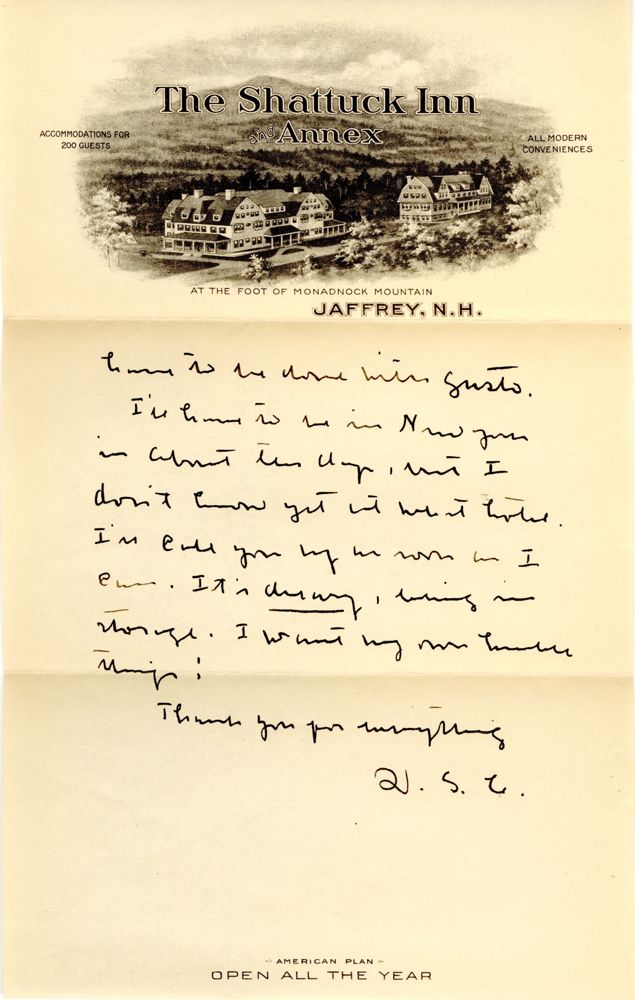 The Shattuck Inn
and Annex
ACCOMMODATIONS FOR
200 GUESTS
ALL MODERN
CONVENIENCES
AT THE FOOT OF MONADNOCK MOUNTAIN
JAFFREY, N.H.
have to be done with gusto.
I'll have to be in New York
in about ten days, but I
don't know yet at what hotel.
I'll call you up as soon as I
can. It's dreary, being in
storage. I want my own humble
things!
Thank you for everything
W. S. C.
AMERICAN PLAN
OPEN ALL THE YEAR